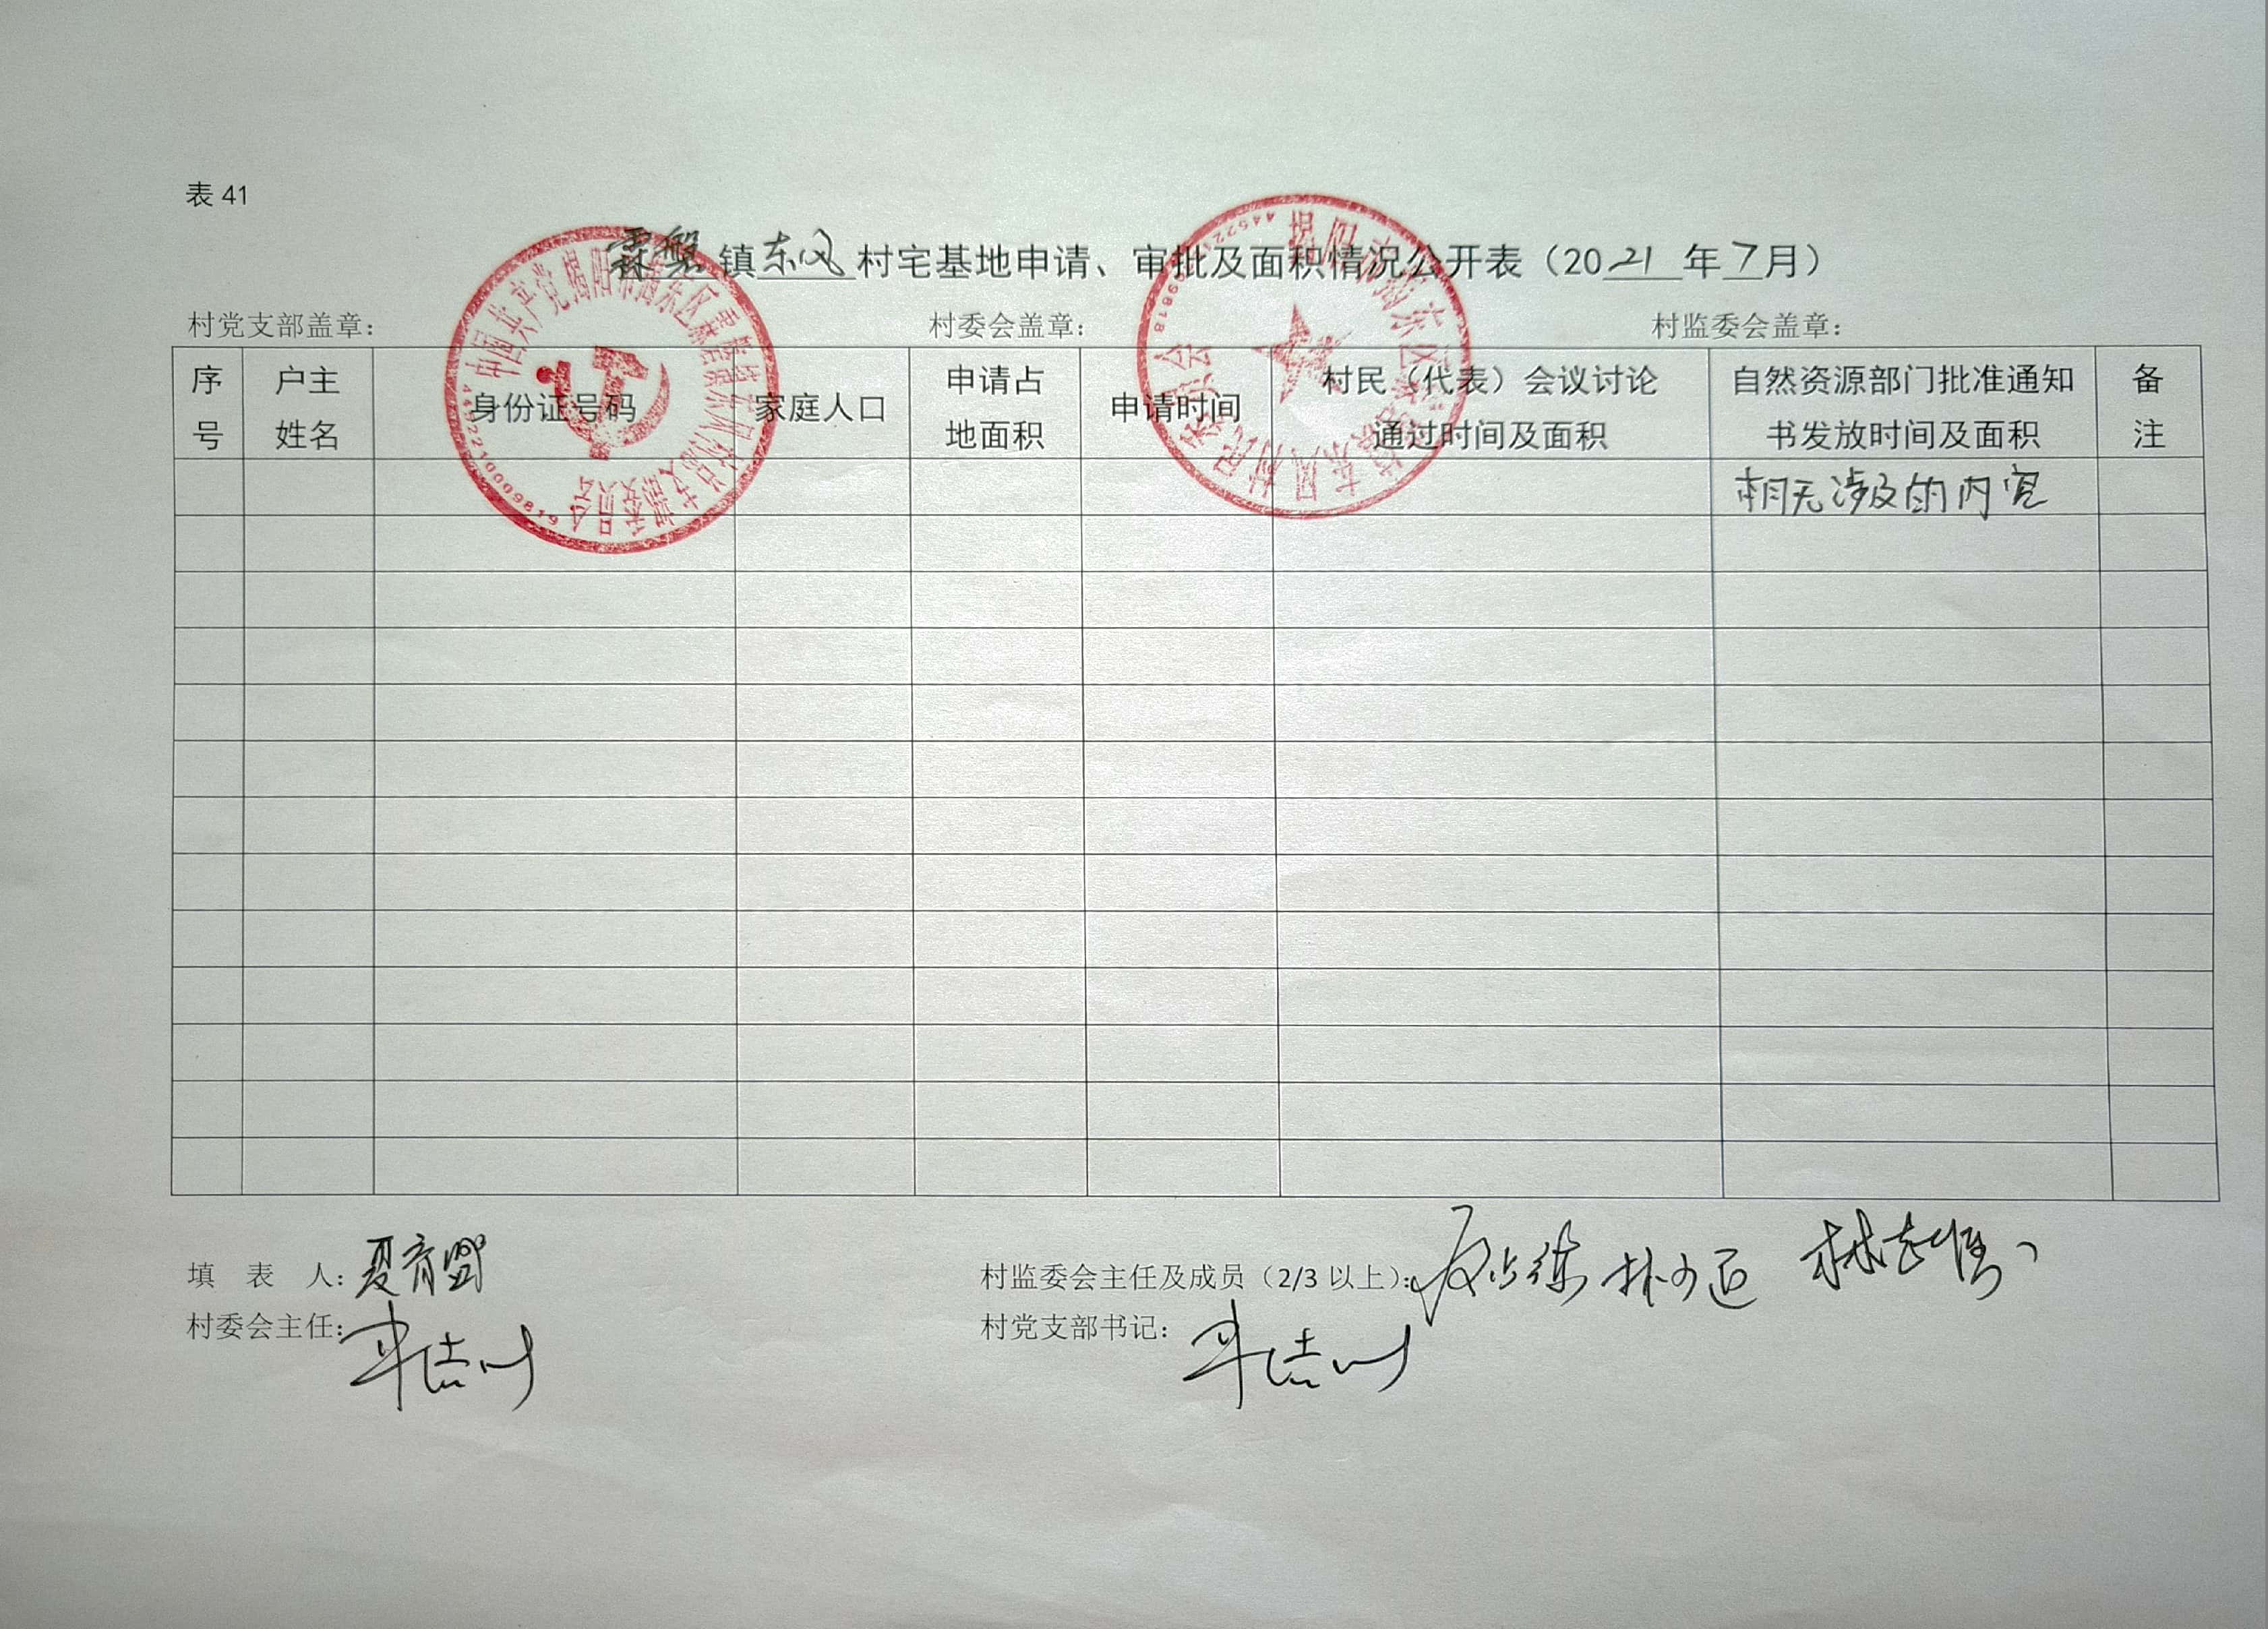 表 41
霖磐镇东风村宅基地申请、审批及面积情况公开表（2021年7月）
村党支部盖章： 村委会盖章： 村监委会盖章：
序号 户主姓名 身份证号码 家庭人口 申请占地面积 申请时间 村民（代表）会议讨论通过时间及面积 自然资源部门批准通知书发放时间及面积 备注
本月无涉及的内容
中国共产党揭阳市揭东区霖磐镇东风村总支部委员会
4452210009819
揭阳市揭东区霖磐镇东风村民委员会
填 表 人：夏育盟
村监委会主任及成员（2/3 以上）：
村委会主任：
村党支部书记：